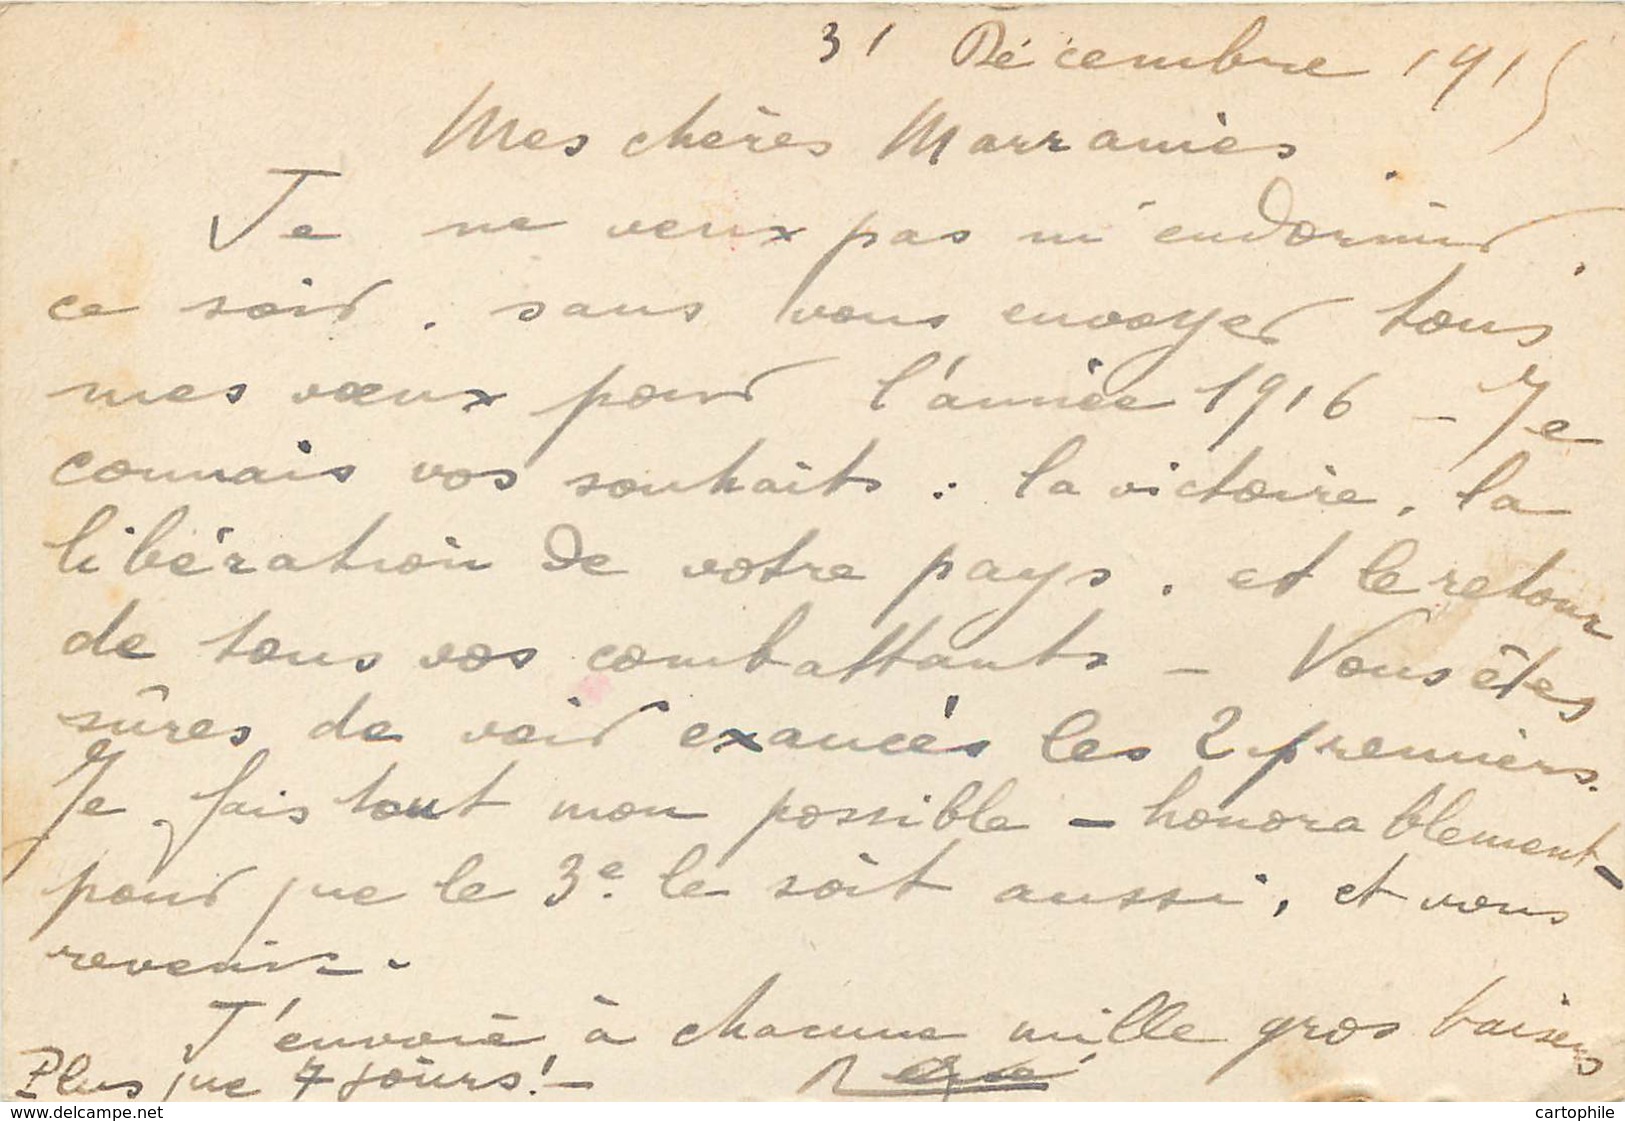 31 Décembre 1915
Mes chères Marraines
Je ne veux pas m'endormir
ce soir, sans vous envoyer tous
mes vœux pour l'année 1916 - Je
connais vos souhaits : la victoire, la
libération de votre pays, et le retour
de tous vos combattants - Vous êtes
sûres de voir exaucés les 2 premiers.
Je fais tout mon possible - honorablement -
pour que le 3e le soit aussi, et vous
revenir.
J'envoie à chacune mille gros baisers
Plus que 7 jours! -
www.delcampe.net
cartophile